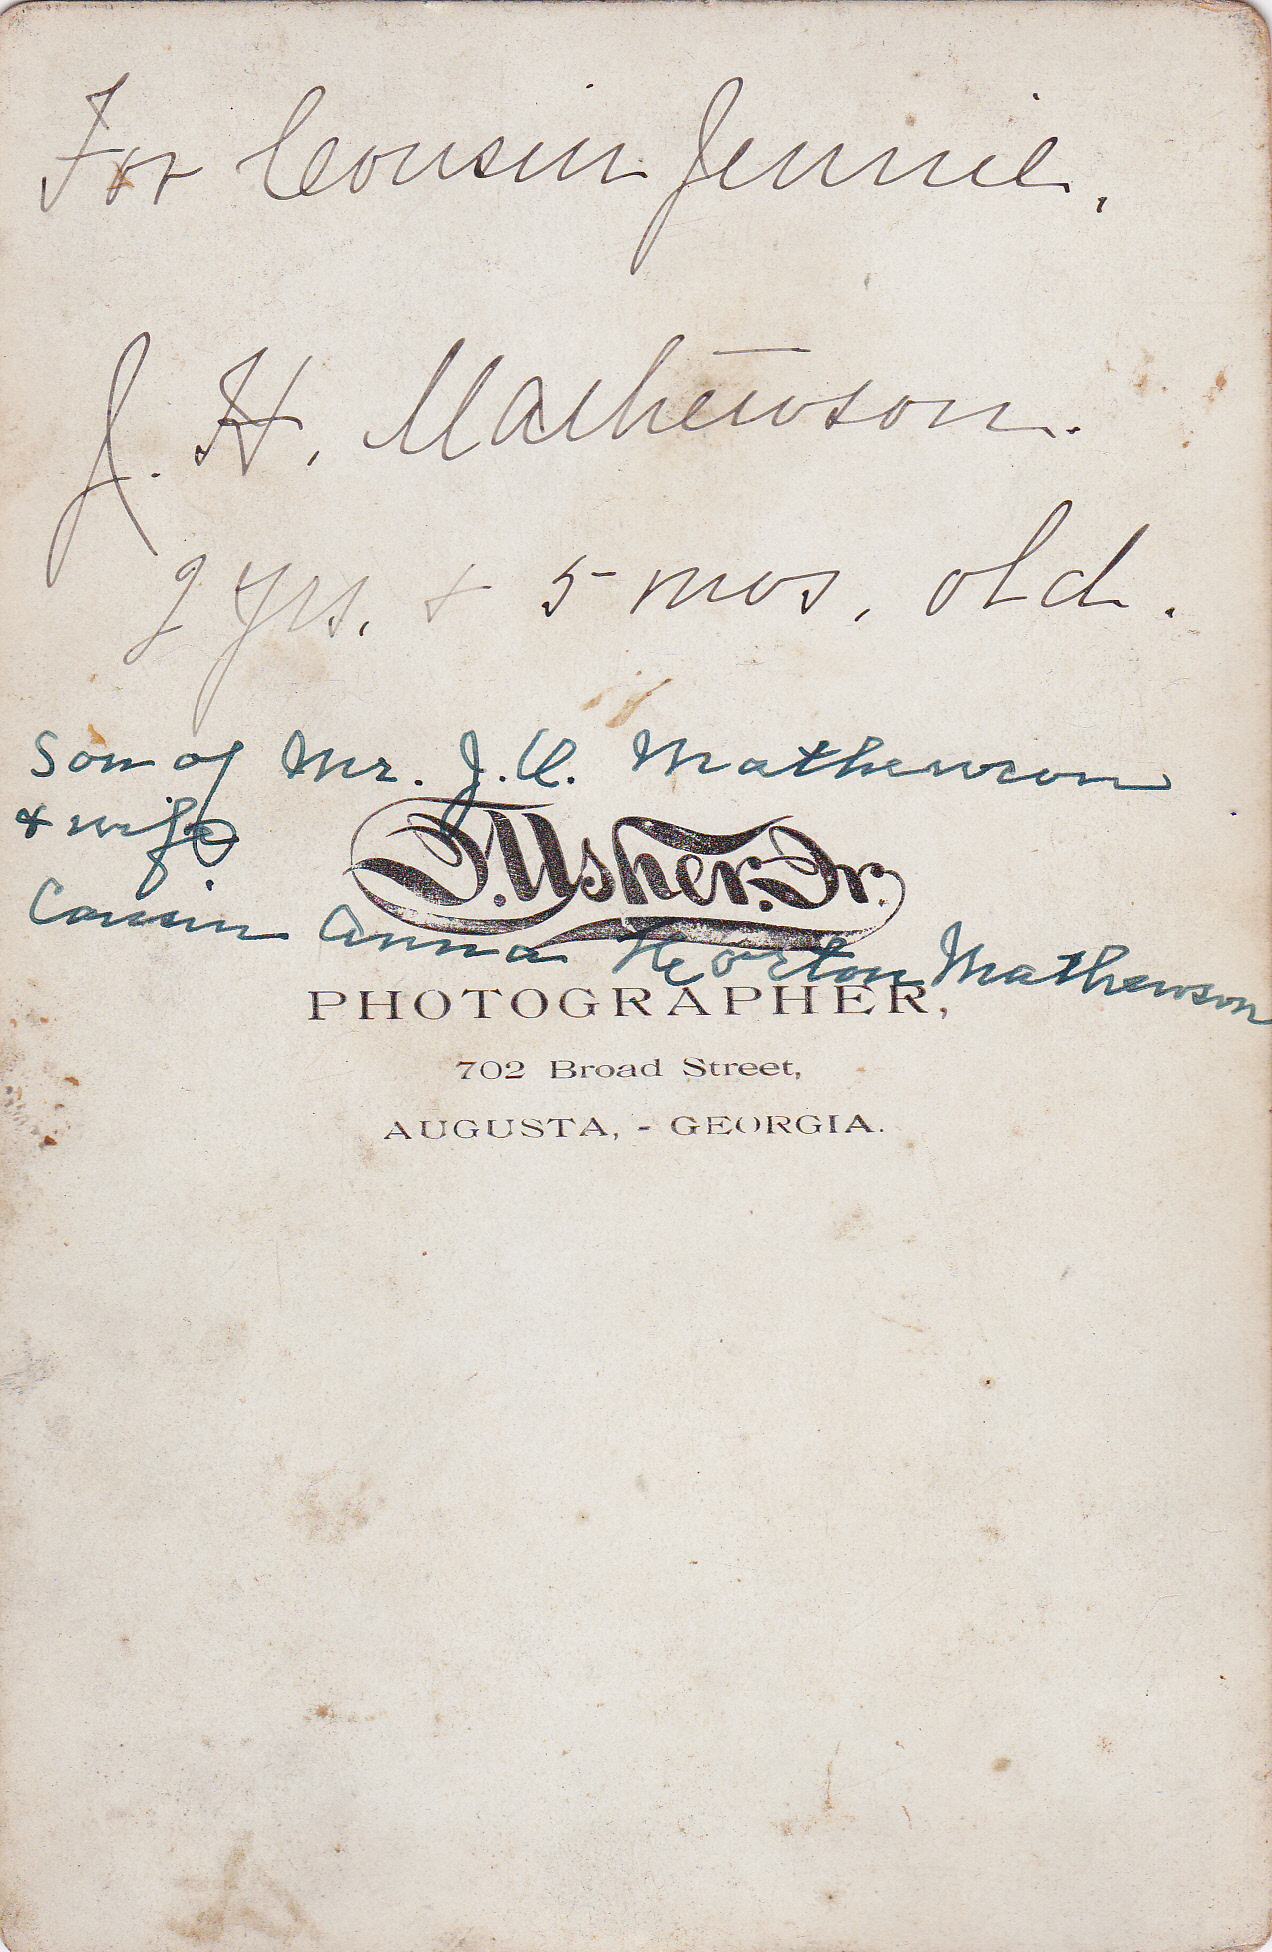 For Cousin Jennie,
J. H. Mathewson.
2 yrs. & 5 mos. old.
Son of Mr. J. O. Mathewson
& wife
J. Usher, Jr.
Cousin Anna Horton Mathewson
PHOTOGRAPHER,
702 Broad Street,
AUGUSTA, - GEORGIA.